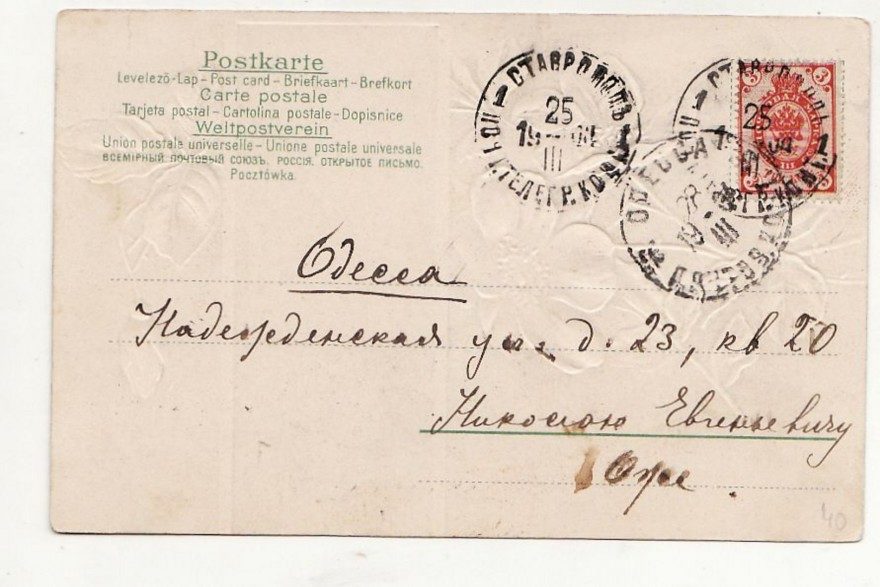 Postkarte
Levelező-Lap – Post card – Briefkaart – Brefkort
Carte postale
Tarjeta postal – Cartolina postale – Dopisnice
Weltpostverein
Union postale universelle – Unione postale universale
ВСЕМІРНЫЙ ПОЧТОВЫЙ СОЮЗЪ. РОССІЯ. ОТКРЫТОЕ ПИСЬМО.
Pocztówka.
СТАВРОПОЛЬ
1 25 1
III
ТЕЛЕГР. КОН
СТАВРОПОЛ
25
3 3
ОДЕССА
28
19
III
Одесса
Надежденская ул. д. 23, кв 20
Николаю Евгеньевичу
40